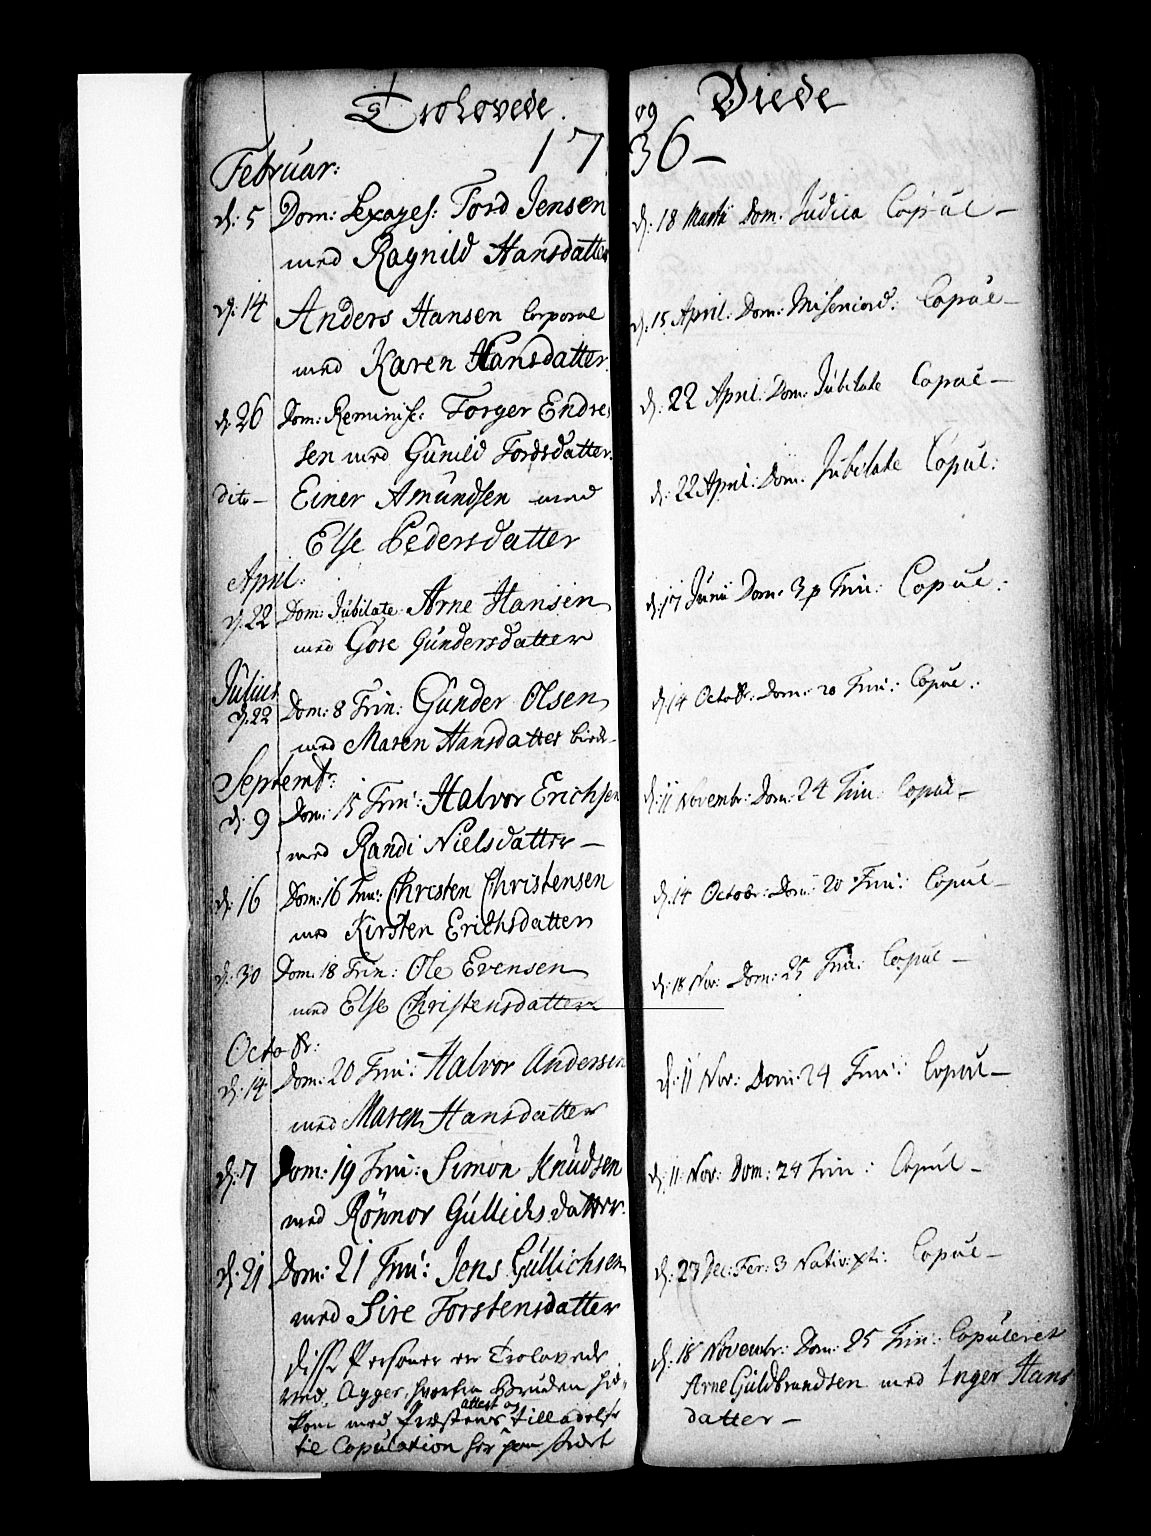 Trolovede
17
Februar:
d: 5 Dom: Sexages: Tord Jensen
med Ragnild Hansdatter
d: 14 Anders Hansen Corporal
med Karen Hansdatter
d: 26 Dom: Reminisc: Torger Endre
sen med Gunild Tordsdatter
dito – Einer Amundsen med
Else Pedersdatter
April:
d: 22 Dom: Jubilate Arne Hansen
med Gore Gundersdatter
Julius
d: 22 Dom: 8 Trin: Gunder Olsen
med Maren Hansdatter
Septembr:
d: 9 Dom: 15 Trin: Halvor Erichsen
med Randi Nielsdatter –
d: 16 Dom: 16 Trin: Christen Christensen
med Kirsten Erichsdatter
d: 30 Dom. 18 Trin: Ole Evensen
med Else Christensdatter
Octobr:
d: 14 Dom: 20 Trin: Halvor Andersen
med Maren Hansdatter
d: 7 Dom: 19 Trin: Simon Knudsen
med Rönnor Gullichsdatter.
d: 21 Dom: 21 Trin: Jens Gullichsen
med Sire Torstensdatter
disse Personer er Trolovede
ved Agger, hvorfra Bruden hid
kom med Præstens attest og tilladelse
til Copulation her paa stedet
og Viede
36 –
d: 18 Martii Dom: Judica Copul –
d: 15 April: Dom: Misericord: Copul –
d: 22 April: Dom: Jubilate Copul –
d: 22 April: Dom: Jubilate Copul:
d: 17 Junii Dom: 3 p Trin: Copul:
d: 14 Octobr: Dom: 20 Trin: Copul:
d: 11 Novembr: Dom: 24 Trin Copul –
d: 14 Octobr: Dom: 20 Trin: Copul –
d: 18 Nov: Dom: 25 Trin: Copul –
d: 11 Nov: Dom: 24 Trin: Copul –
d: 11 Nov: Dom: 24 Trin: Copul –
d: 27 Dec: Fer: 3 Nativ: xti: Copul –
d: 18 Novembr: Dom: 25 Trin: Copuleret
Arne Guldbrandsen med Inger Hans
datter –